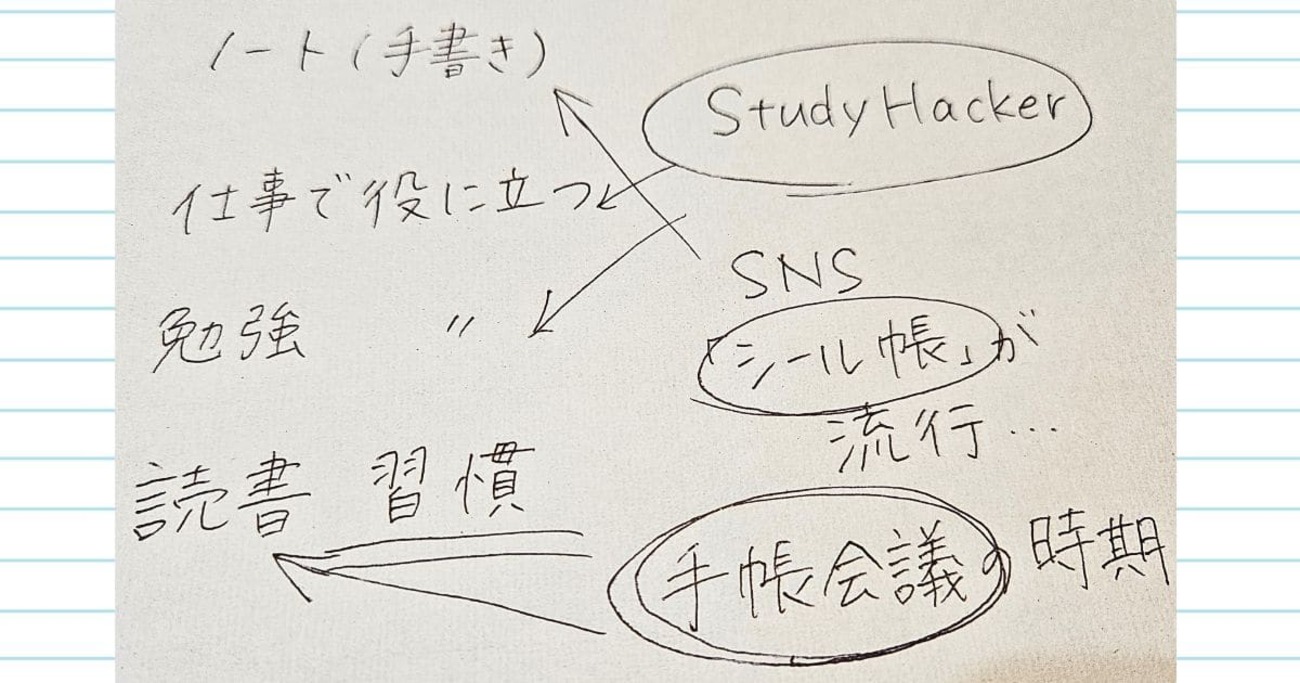 ノート(手書き)
StudyHacker
仕事で役に立つ
SNS
勉強 〃
「シール帳」が
流行…
読書 習慣
手帳会議の時期